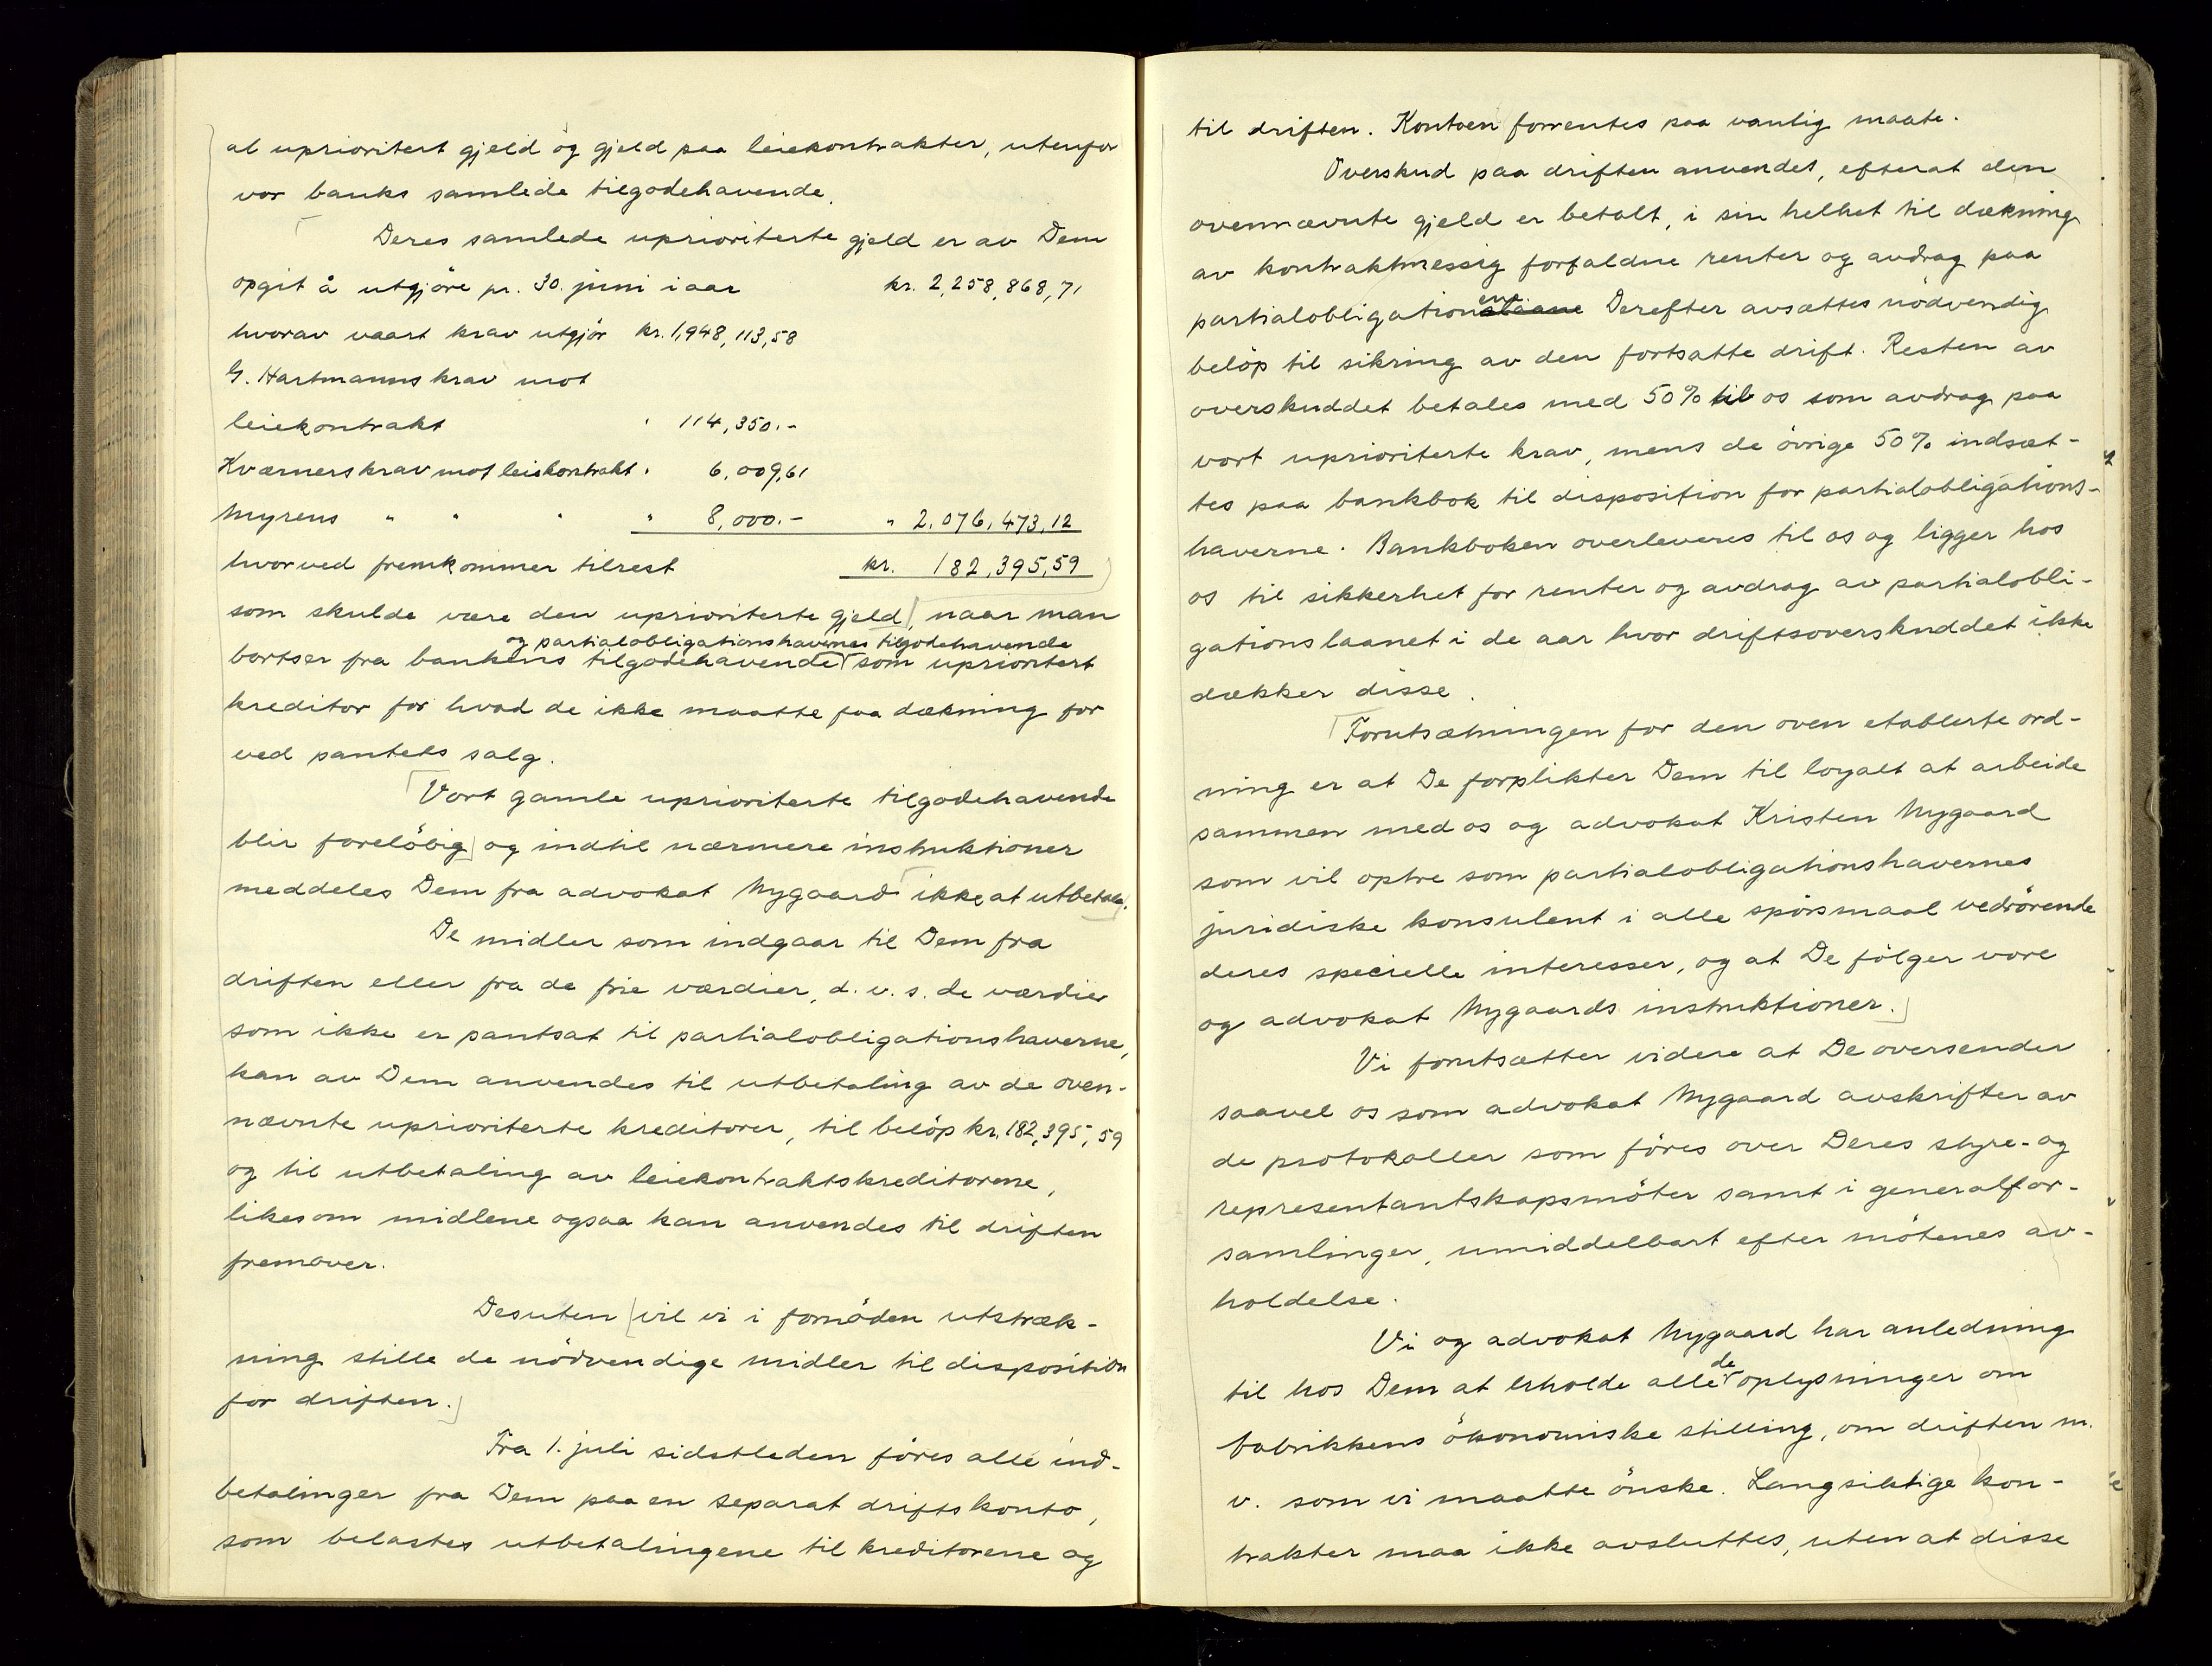 al uprioritert gjeld og gjeld paa leiekontrakter, utenfor
vor banks samlede tilgodehavende.
Deres samlede uprioriterte gjeld er av Dem
opgit å utgjöre pr. 30. juni i aar kr. 2,258,868,71
hvorav vaart krav utgjör kr. 1,948,113,58
G. Hartmanns krav mot
leiekontrakt " 114,350.-
Kværners krav mot leiekontrakt " 6,009,61
Myrens " " " " 8,000.- " 2,076,473,12
hvorved fremkommer tilrest kr. 182,395,59
som skulde være den uprioriterte gjeld, naar man
og partialobligationshavernes tilgodehavende
bortser fra bankens tilgodehavende som uprioritert
kreditor for hvad de ikke maatte faa dækning for
ved pantets salg.
Vort gamle uprioriterte tilgodehavende
blir foreløbig og indtil nærmere instruktioner
meddeles Dem fra advokat Nygaard ikke at utbetale.
De midler som indgaar til Dem fra
driften eller fra de frie værdier, d. v. s. de værdier
som ikke er pantsat til partialobligationshaverne,
kan av Dem anvendes til utbetaling av de oven-
nævnte uprioriterte kreditorer, til belöp kr. 182,395,59
og til utbetaling av leiekontraktskreditorene,
likesom midlene ogsaa kan anvendes til driften
fremover.
Desuten vil vi i fornöden utstræk-
ning stille de nödvendige midler til disposition
for driften.
Fra 1. juli sidstleden föres alle ind-
betalinger fra Dem paa en separat driftskonto,
som belastes utbetalingene til kreditorene og
til driften. Kontoen forrentes paa vanlig maate.
Overskud paa driften anvendes, efterat den
ovennævnte gjeld er betalt, i sin helhet til dækning
av kontraktmessig forfaldne renter og avdrag paa
partialobligationene Derefter avsættes nödvendig
belöp til sikring av den fortsatte drift. Resten av
overskuddet betales med 50% til os som avdrag paa
vort uprioriterte krav, mens de övrige 50% indsæt-
tes paa bankbok til disposition for partialobligations-
haverne. Bankboken overleveres til os og ligger hos
os til sikkerhet for renter og avdrag av partialobli-
gationslaanet i de aar hvor driftsoverskuddet ikke
dækker disse.
Forutsætningen for den oven etablerte ord-
ning er at De forplikter Dem til loyalt at arbeide
sammen med os og advokat Kristen Nygaard
som vil optre som partialobligationshavernes
juridiske konsulent i alle spörsmaal vedrörende
deres specielle interesser, og at De fölger vore
og advokat Nygaards instruktioner.
Vi forutsætter videre at De oversender
saavel os som advokat Nygaard avskrifter av
de protokoller som föres over Deres styre- og
representantskapsmöter samt i generalfor-
samlinger, umiddelbart efter mötenes av-
holdelse.
Vi og advokat Nygaard har anledning
de
til hos Dem at erholde alle oplysninger om
fabrikkens ökonomiske stilling, om driften m.
v. som vi maatte önske. Langsiktige kon-
trakter maa ikke avsluttes, uten at disse